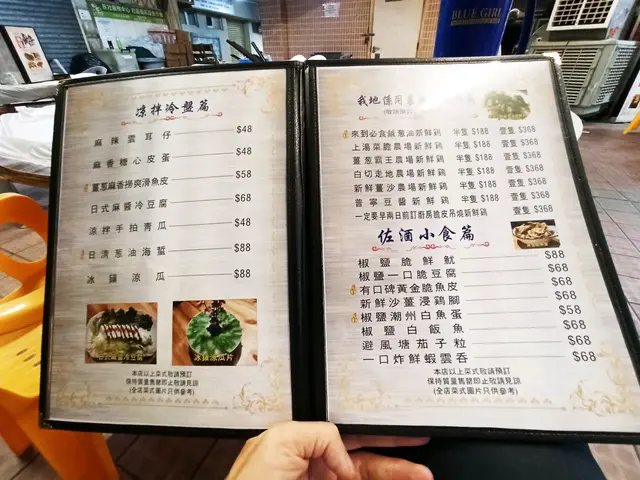 BLUE GIRL
涼拌冷盤篇
麻辣雲耳仔 $48
麻香糖心皮蛋 $48
薑葱麻香撈爽滑魚皮 $58
日式麻醬冷豆腐 $68
涼拌手拍青瓜 $48
日清葱油海蜇 $88
冰鎮涼瓜 $88
日式麻醬冷豆腐
冰鎮涼瓜片
本店以上菜式敬請預訂
保持質量售罄即止敬請見諒
(全店菜式圖片只供參考)
我地係用農
來到必食鹹葱油新鮮鷄 半隻 $188 壹隻 $368
上湯菜脆農場新鮮鷄 半隻 $188 壹隻 $368
薑葱霸王農場新鮮鷄 半隻 $188 壹隻 $368
白切走地農場新鮮鷄 半隻 $188 壹隻 $368
新鮮薑沙農場新鮮鷄 半隻 $188 壹隻 $368
普寧豆醬新鮮鷄 半隻 $188 壹隻 $368
一定要早兩日前訂廚房脆皮吊燒新鮮鷄 壹隻 $368
佐酒小食篇
椒鹽脆鮮魷 $88
椒鹽一口脆豆腐 $68
有口碑黃金脆魚皮 $68
新鮮沙薑浸鷄腳 $68
椒鹽潮州白魚蛋 $58
椒鹽白飯魚 $68
避風塘茄子粒 $68
一口炸鮮蝦雲吞 $68
本店以上菜式敬請預訂
保持質量售罄即止敬請見諒
(全店菜式圖片只供參考)